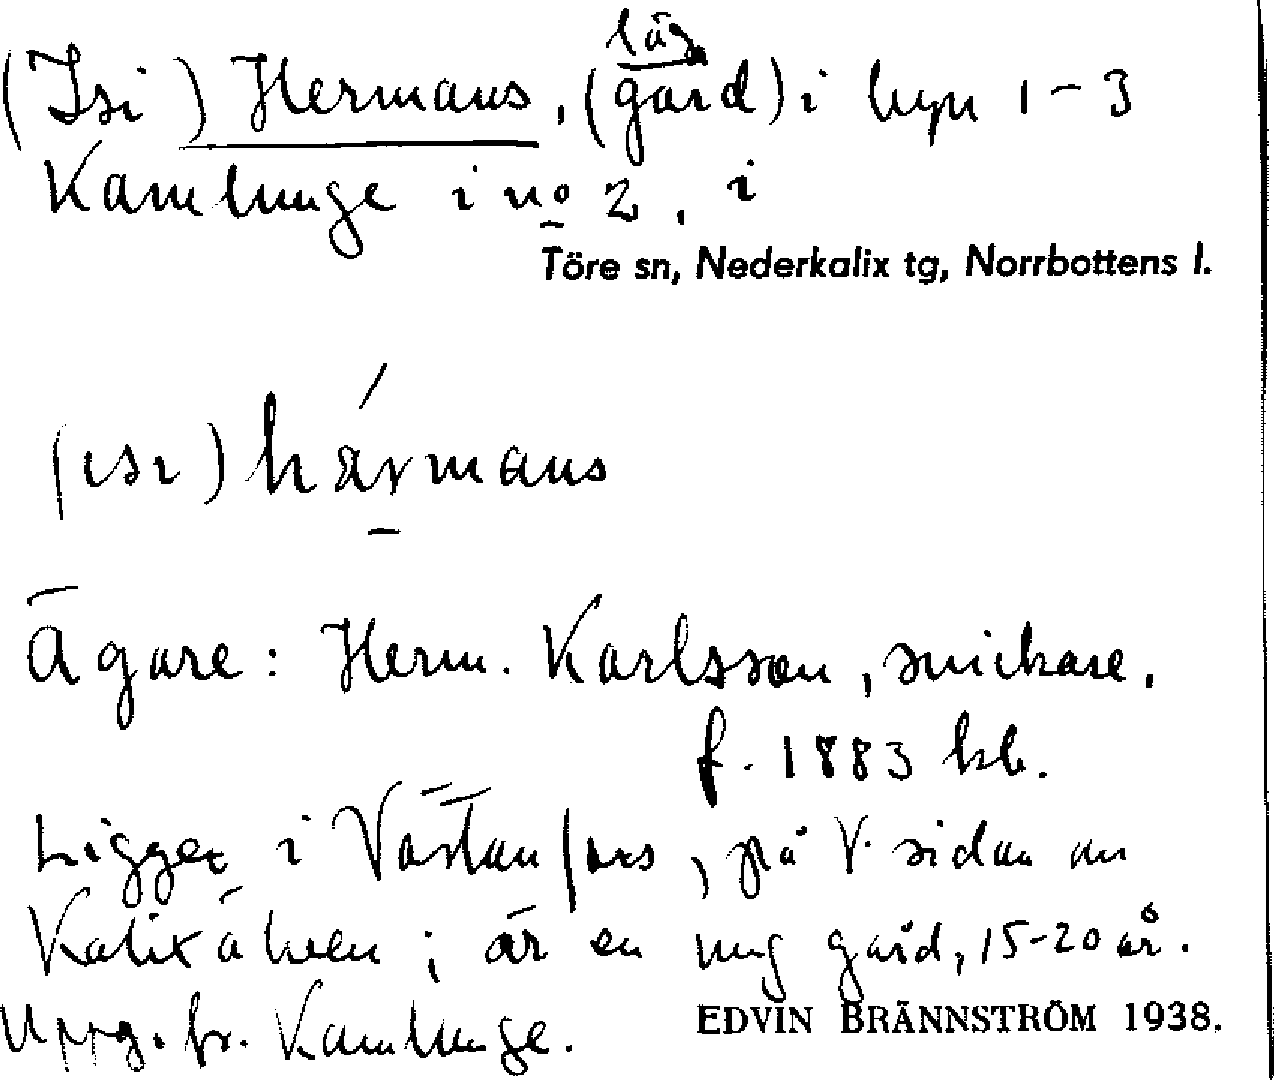 läg
(Isi) Hermans, (gård) i byn 1-3
Kamlunge i no 2, i
Töre sn, Nederkalix tg, Norrbottens l.
(ısı) härmans
Ägare: Herm. Karlsson, snickare.
f. 1883 kb.
Ligger i Västanfors, på V. sidan om
Kalixälven; är en ung gård, 15-20 år.
Uppg. fr. Kamlunge.
EDVIN BRÄNNSTRÖM 1938.